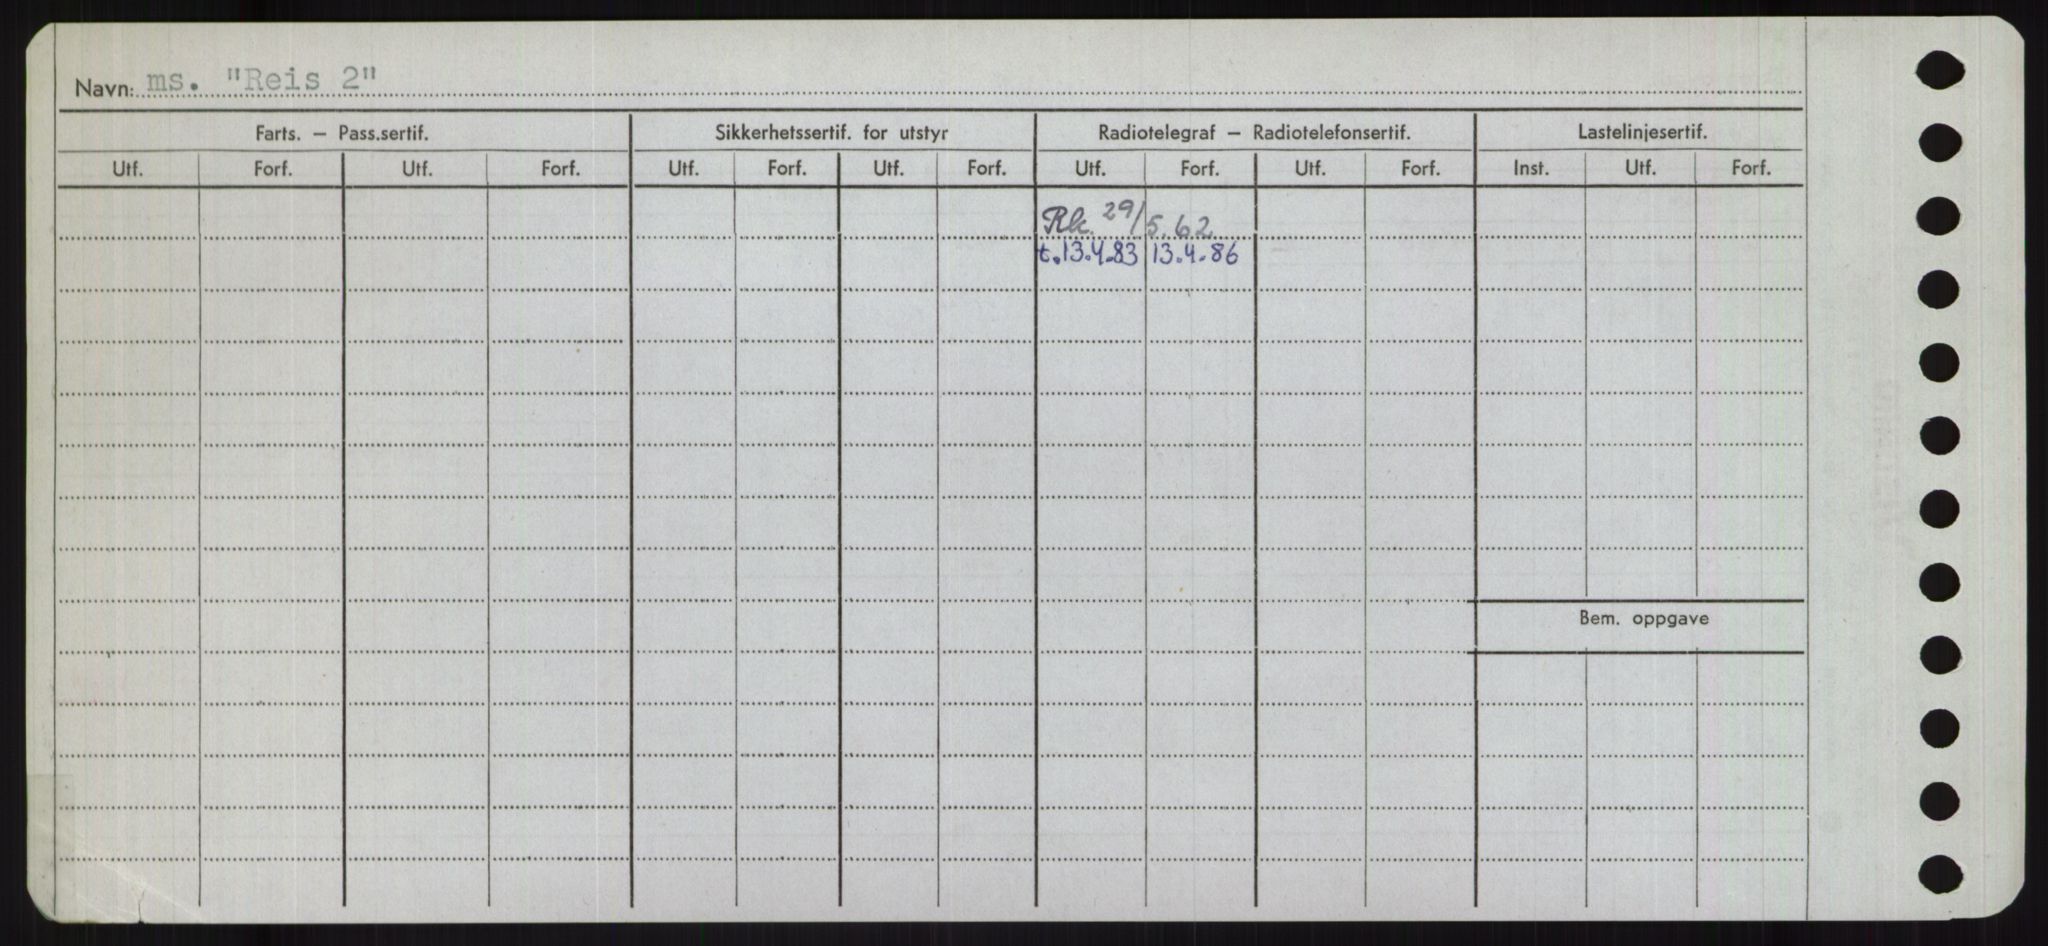 Navn: ms. "Reis 2"
Farts. — Pass.sertif. Sikkerhetssertif. for utstyr Radiotelegraf — Radiotelefonsertif. Lastelinjesertif.
Utf. Forf. Utf. Forf. Utf. Forf. Utf. Forf. Utf. Forf. Utf. Forf. Inst. Utf. Forf.
Rk. 29/5.62
t.13.4.83 13.4.86
Bem. oppgave